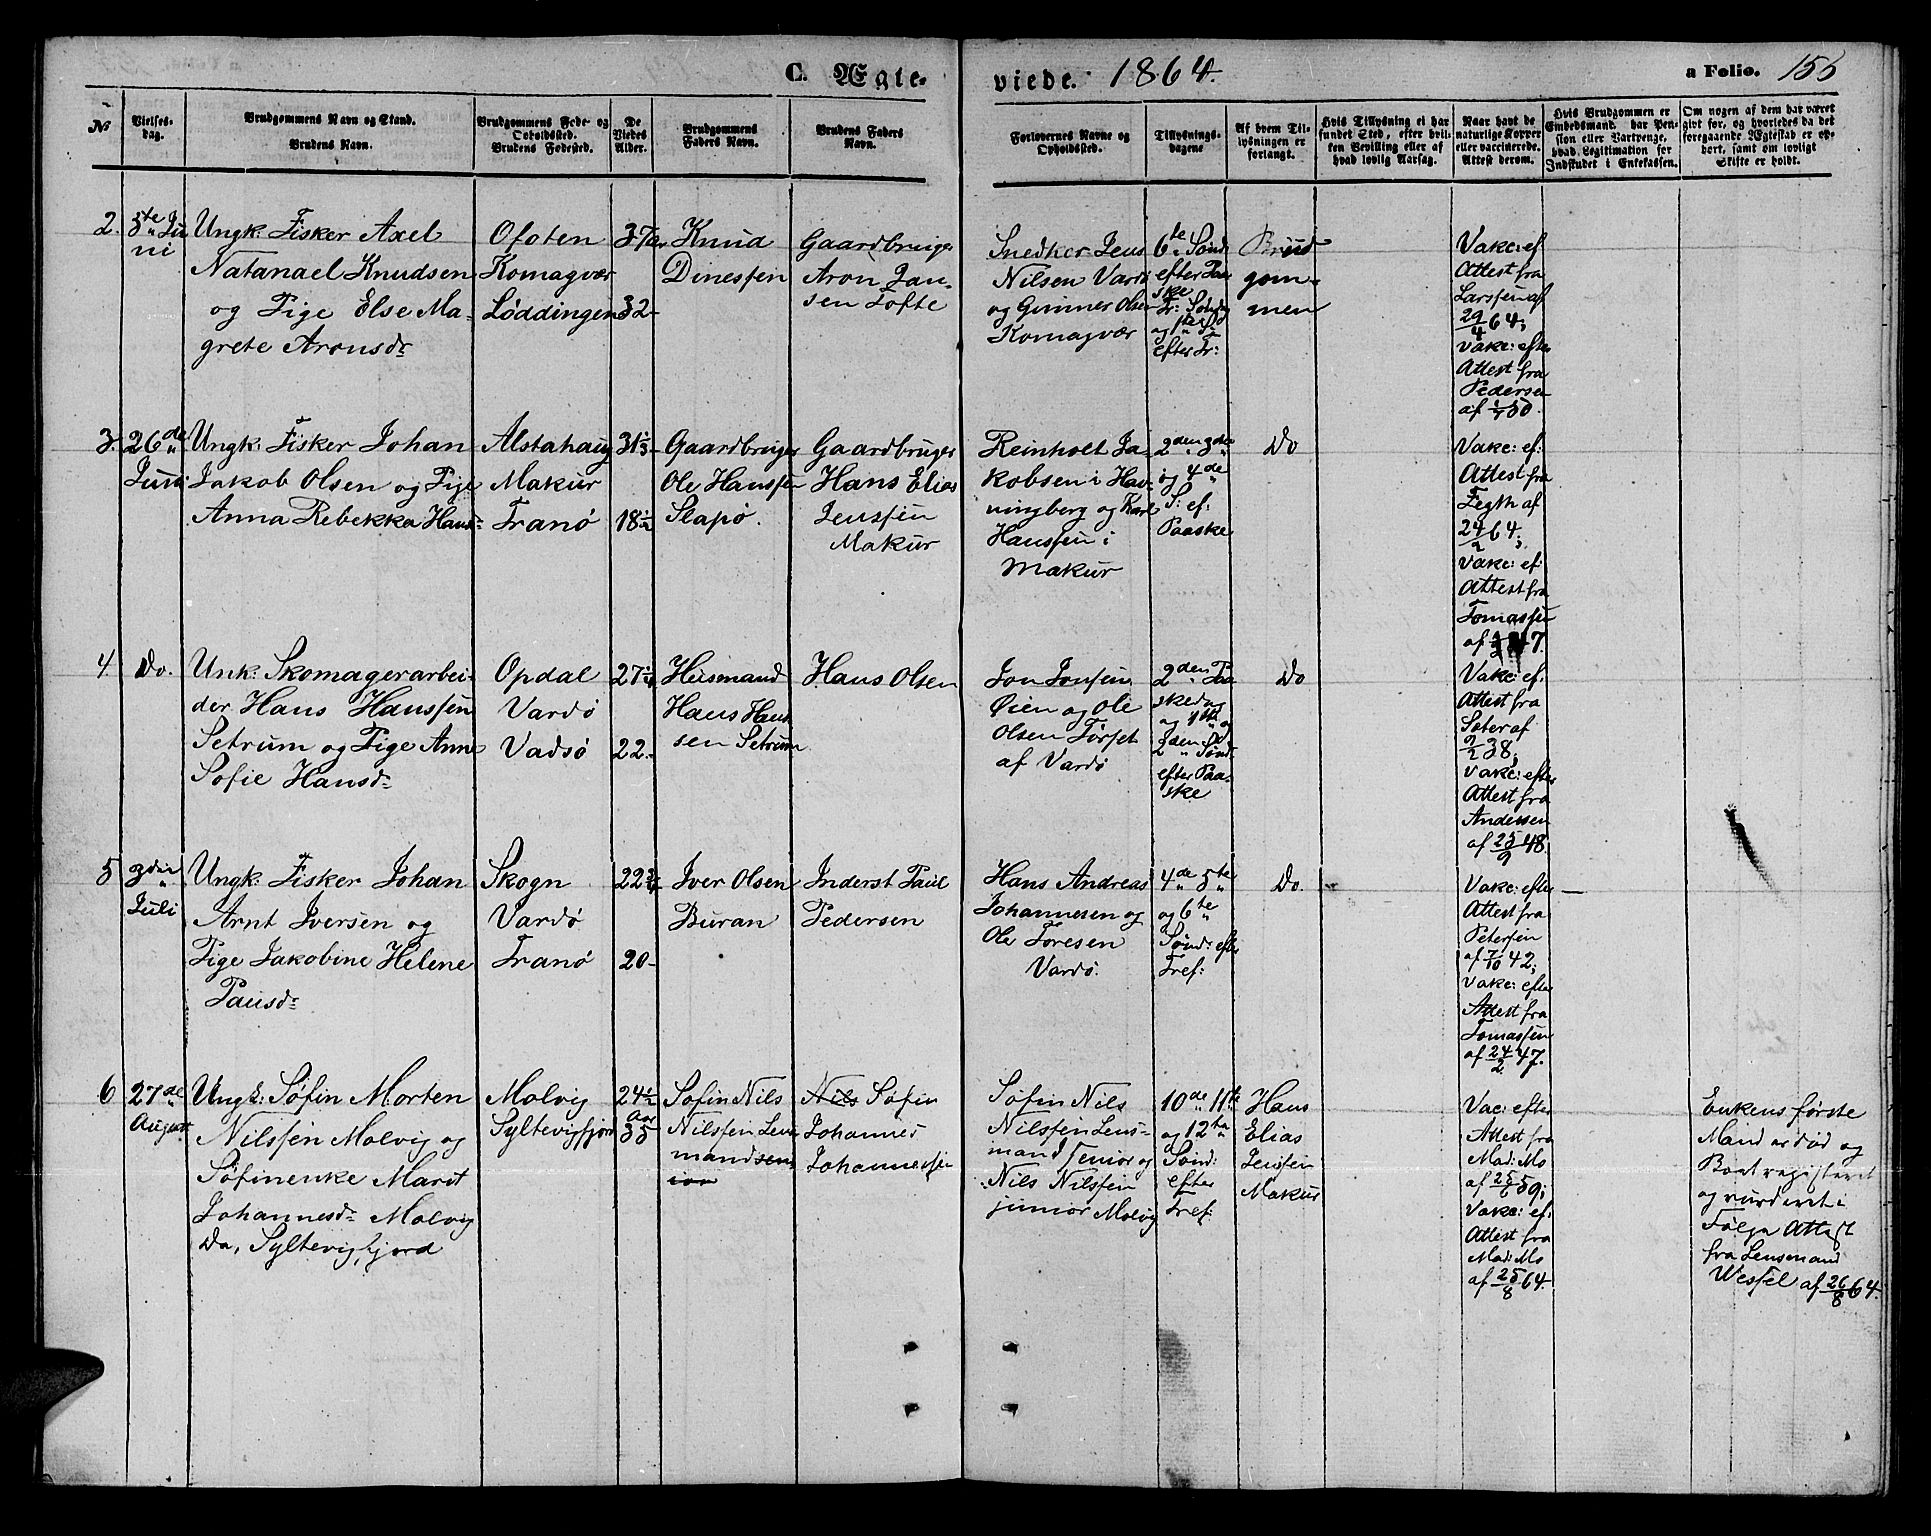 C. Ægte-
viede. 1864.
a Folio. 155
No
Vielses-
dag.
Brudgommens Navn og Stand.
Brudens Navn.
Brudgommens Føde- og
Opholdssted.
Brudens Fødested.
De
Viedes
Alder.
Brudgommens
Faders Navn.
Brudens Faders
Navn.
Forlovernes Navne og
Opholdssted.
Tillysnings-
dagene
Af hvem Til-
lysningen er
forlangt.
Hvis Tillysning ei har
fundet Sted, efter hvil-
ken Bevilling eller af
hvad lovlig Aarsag.
Naar havt de
naturlige Kopper
eller vaccinerede.
Attest derom.
Hvis Brudgommen er
Embedsmand, har Pen-
sion eller Vartpenge,
hvad Legitimation for
Indskudet i Enkekassen.
Om nogen af dem har været
gift før, og hvorledes da det
foregaaende Ægteskab er op-
hørt, samt om lovligt
Skifte er holdt.
2.
5te Ju
ni
Ungk: Fisker Axel
Natanael Knudsen
og Pige Else Ma-
grete Aronsdr
Ofoten
Komagvær
Løddingen
32-
Knud
Dinessen
Gaardbruger
Aron Jan-
sen Tofte
Snedker Jens
Nilsen Vardø
og Gunner Olsen
Komagvær
6te Sønd
efter Paa
ske
Tr: Søndg
og 1ste S.
efter Tr:
Brud
gom-
men
Vakc: ef.
Attest fra
Larssen af
29/4 64;
Vakc: efter
Attest fra
Pedersen
af 1/7 50.
3.
26de
Juni
Ungk: Fisker Johan
Jakob Olsen og Pige
Anna Rebekka Hansd:
Alstahaug
Makur
Tranø
31½-
18½
Gaardbruger
Ole Hanssen
Slapø.
Gaardbruger
Hans Elias
Jenssen
Makur
Reinholt Ja-
kobsen i Hav-
ningberg og Karl
Hanssen i
Makur
2den 3die
og 4de
S: ef:
Paaske
Do
Vakc: ef:
Attest fra
Fegth af
24/2 64;
Vakc: ef:
Attest fra
Tomassen
4.
Do.
Unk: Skomagerarbei-
der Hans Hanssen
Setrum og Pige Anne
Sofie Hansdr
Opdal
Vardø
Vadsø
27¼
22.-
Husmand
Hans Han-
sen Setrum
Hans Olsen
Jon Jonsen
Øien og Ole
Olsen Tørset
af Vardø
2den Paa
skedag
og 1ste og
2den Sønd:
efter Paa-
ske
Do
Vakc: ef:
Attest fra
Seter af
9/2 38;
Vakc: efter
Attest fra
Andersen
af 25/9 48.
5
3die
Juli
Ungk: Fisker Johan
Arnt Iversen og
Pige Jakobine Helene
Pausdr
Skogn
Vardø
Tranø
22¾
20-
Iver Olsen
Buran
Inderst Paul
Pedersen
Hans Andreas
Johannesen og
Ole Toresen
Vardø.
4de 5te
og 6te
Sønd: efter
Tref:
Do.
Vakc: efter
Attest fra
Petersen
af 7/10 42;
Vakc: efter
Attest fra
Tomassen
af 24/2 47.
6
27de
August
Ungk: Søfin Morten
Nilssen Molvig og
Søfinenke Marit
Johannesdr Molvig
Do, Syltevigfjord
Molvig
Syltevigfjord
24½
Aar
35
Søfin Nils
Nilssen Lens
mandsen
ior
Nils Søfin
Johannes
Johannessen
Søfin Nils
Nilssen Lens-
mand senior og
Nils Nilssen
junior Molvig
10de 11te
og 12te
Sønd:
efter
Tref:
Hans
Elias
Jenssen
Makur
Vac: efter
Attest fra
Mad: Mo
af 25/6 59;
Vakc: ef:
Attest fra
Mad: Mo
af 25/8 64.
Enkens første
Mand er død og
Boet registeret
og vurderet i
Følge Attest
fra Lensmand
Wessel af 26/8 64.